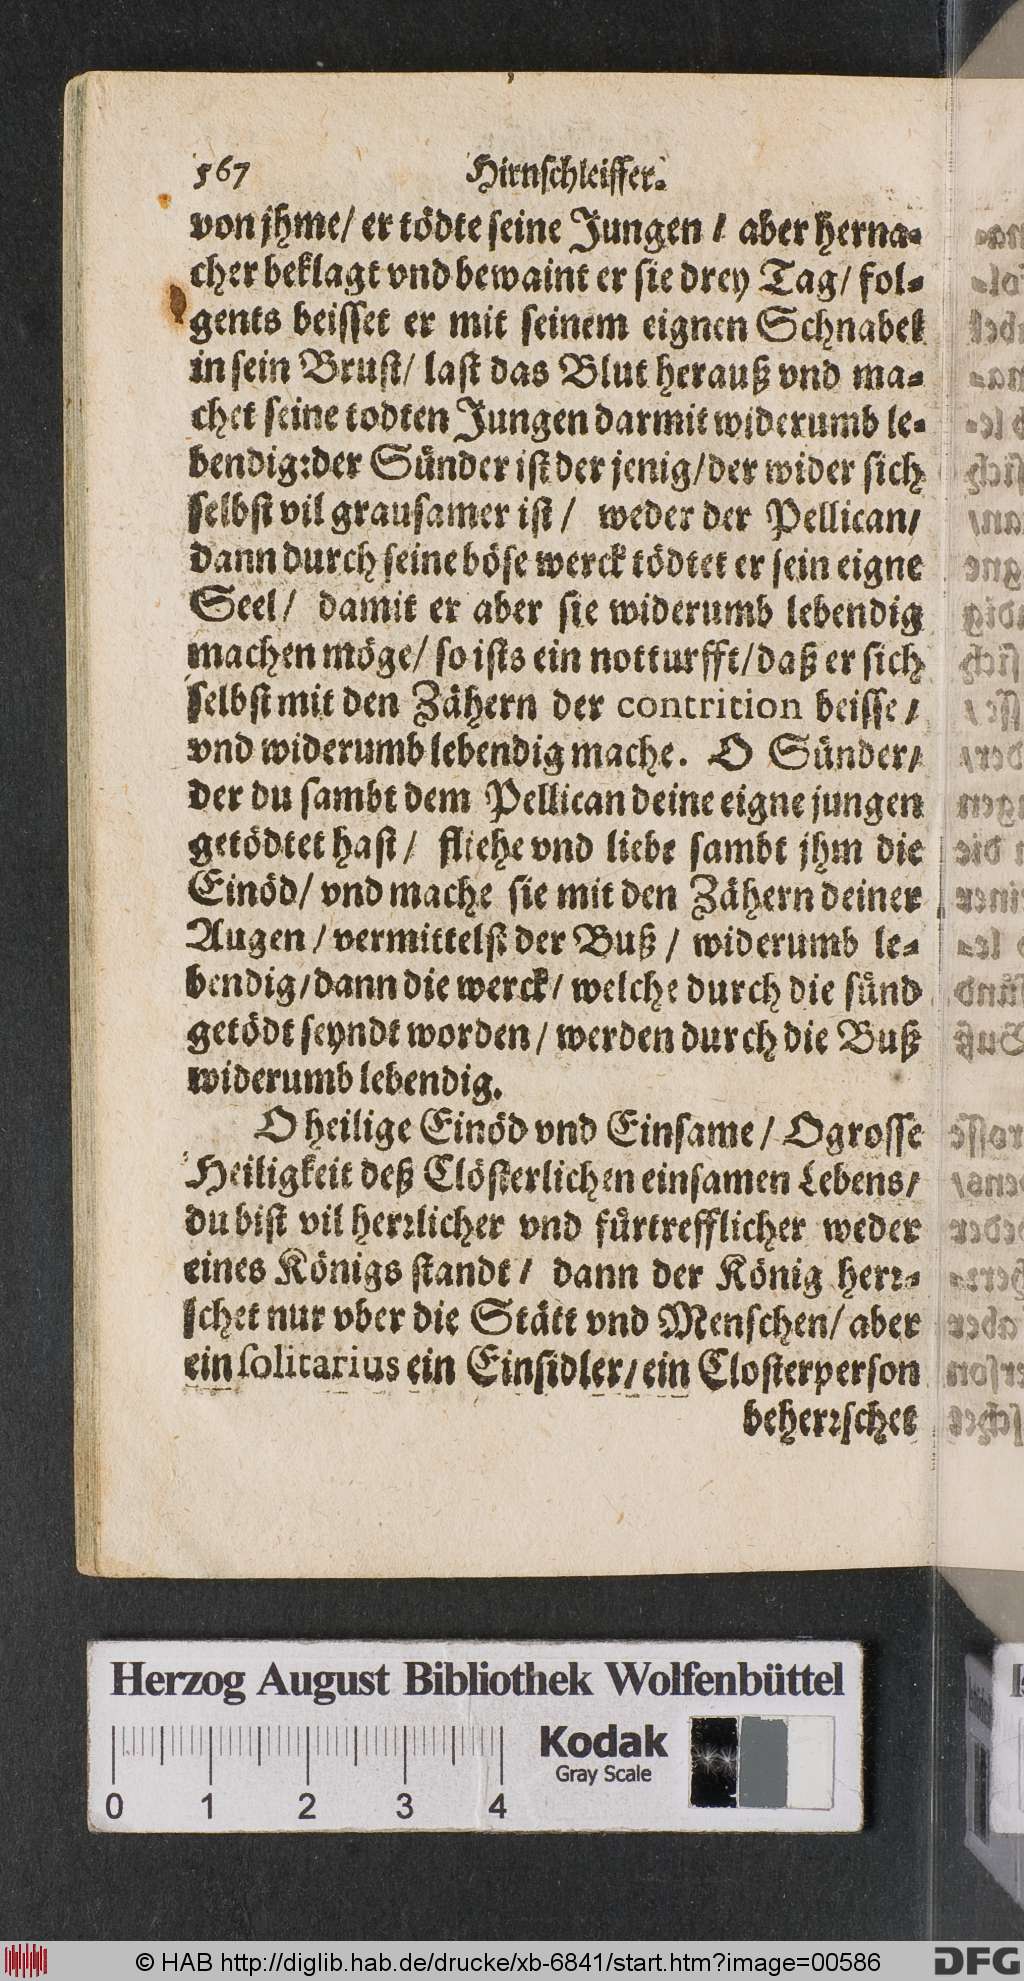 567 Hirnschleiffer.
von jhme/ er tödte seine Jungen / aber herna-
cher beklagt vnd bewaint er sie drey Tag/ fol-
gents beisset er mit seinem eignen Schnabel
in sein Brust/ last das Blut herauß vnd ma-
chet seine todten Jungen darmit widerumb le-
bendig: der Sünder ist der jenig/ der wider sich
selbst vil grausamer ist / weder der Pellican/
dann durch seine böse werck tödtet er sein eigne
Seel / damit er aber sie widerumb lebendig
machen möge/ so ists ein notturfft/ daß er sich
selbst mit den Zähern der contrition beisse /
vnd widerumb lebendig mache. O Sünder/
der du sambt dem Pellican deine eigne jungen
getödtet hast / fliehe vnd liebe sambt jhm die
Einöd/ vnd mache sie mit den Zähern deiner
Augen / vermittelst der Buß / widerumb le-
bendig/ dann die werck/ welche durch die sünd
getödt seyndt worden / werden durch die Buß
widerumb lebendig.
O heilige Einöd vnd Einsame / O grosse
Heiligkeit deß Clösterlichen einsamen Lebens/
du bist vil herrlicher vnd fürtrefflicher weder
eines Königs standt / dann der König herr-
schet nur vber die Stätt vnd Menschen/ aber
ein solitarius ein Einsidler/ ein Closterperson
beherrschet
Herzog August Bibliothek Wolfenbüttel
Kodak
Gray Scale
0 1 2 3 4
© HAB http://diglib.hab.de/drucke/xb-6841/start.htm?image=00586
DFG